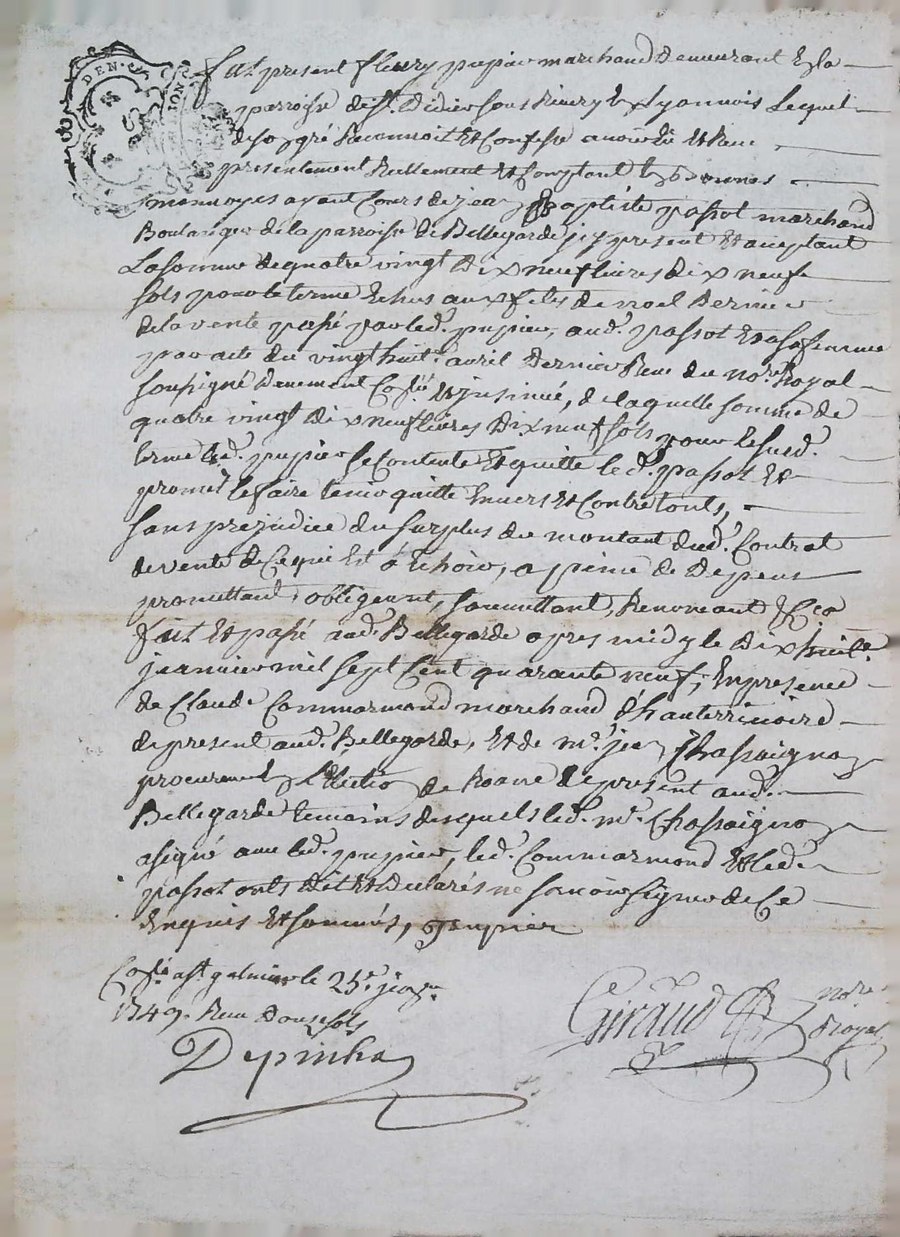 DEN.
fut present fleury pupier marchand demeurant En la
parroisse de St. Didier sous Rivery En Lyonnois Lequel
de son gré Reconnoit Et Confesse avoir Eu Et Receu
presentement Reellement Et Comptant En bonnes
monnoyes ayant Cours de jean Baptiste passot marchand
Boulanger de la parroisse de Bellegarde icy present Et acceptant
La somme de quatre vingt Dix neuf livres dix neuf
sols pour le terme Echus aux fetes de noel Dernier
de la vente passé par led. pupier, aud. passot Et a sa femme
par acte du vingt huit. avril Dernier Receu du Nore. Royal
soussigné Deuement Coslé Et insinué, de laquelle somme de
quatre vingt dix neuf livres Dix neuf sols pour le susd.
terme led. pupier se Contente Et quitte led. passot Et
promet le faire tenir quitte Envers Et Contre touts,
sans prejudice du surplus du montant dud. Contrat
de vente de Ce qui Est a Echoir, a peine de Depens
promettant, obligeant, soumettant, Renonceant &ca
fait Et passé aud. Bellegarde apres midy le Dix huite.
janvier mil sept Cent quarante neuf, En presence
de Claude Commarmond marchand d'hauterrivoire
de present aud. Bellegarde, Et de me. jean Chassaignon
procureur En L'Election de Roanne de present aud.
Bellegarde temoins desquels led. me. Chassaignon
a signé avec led. pupier, led. Commarmond Et led.
passot onts Dit Et Declarés ne sçavoir signer de Ce
Enquis Et sommés, pupier
Coslé a St. galmier le 25e. janer.
1749. Receu Douze sols
Depinha
Giraud nore.
Royal